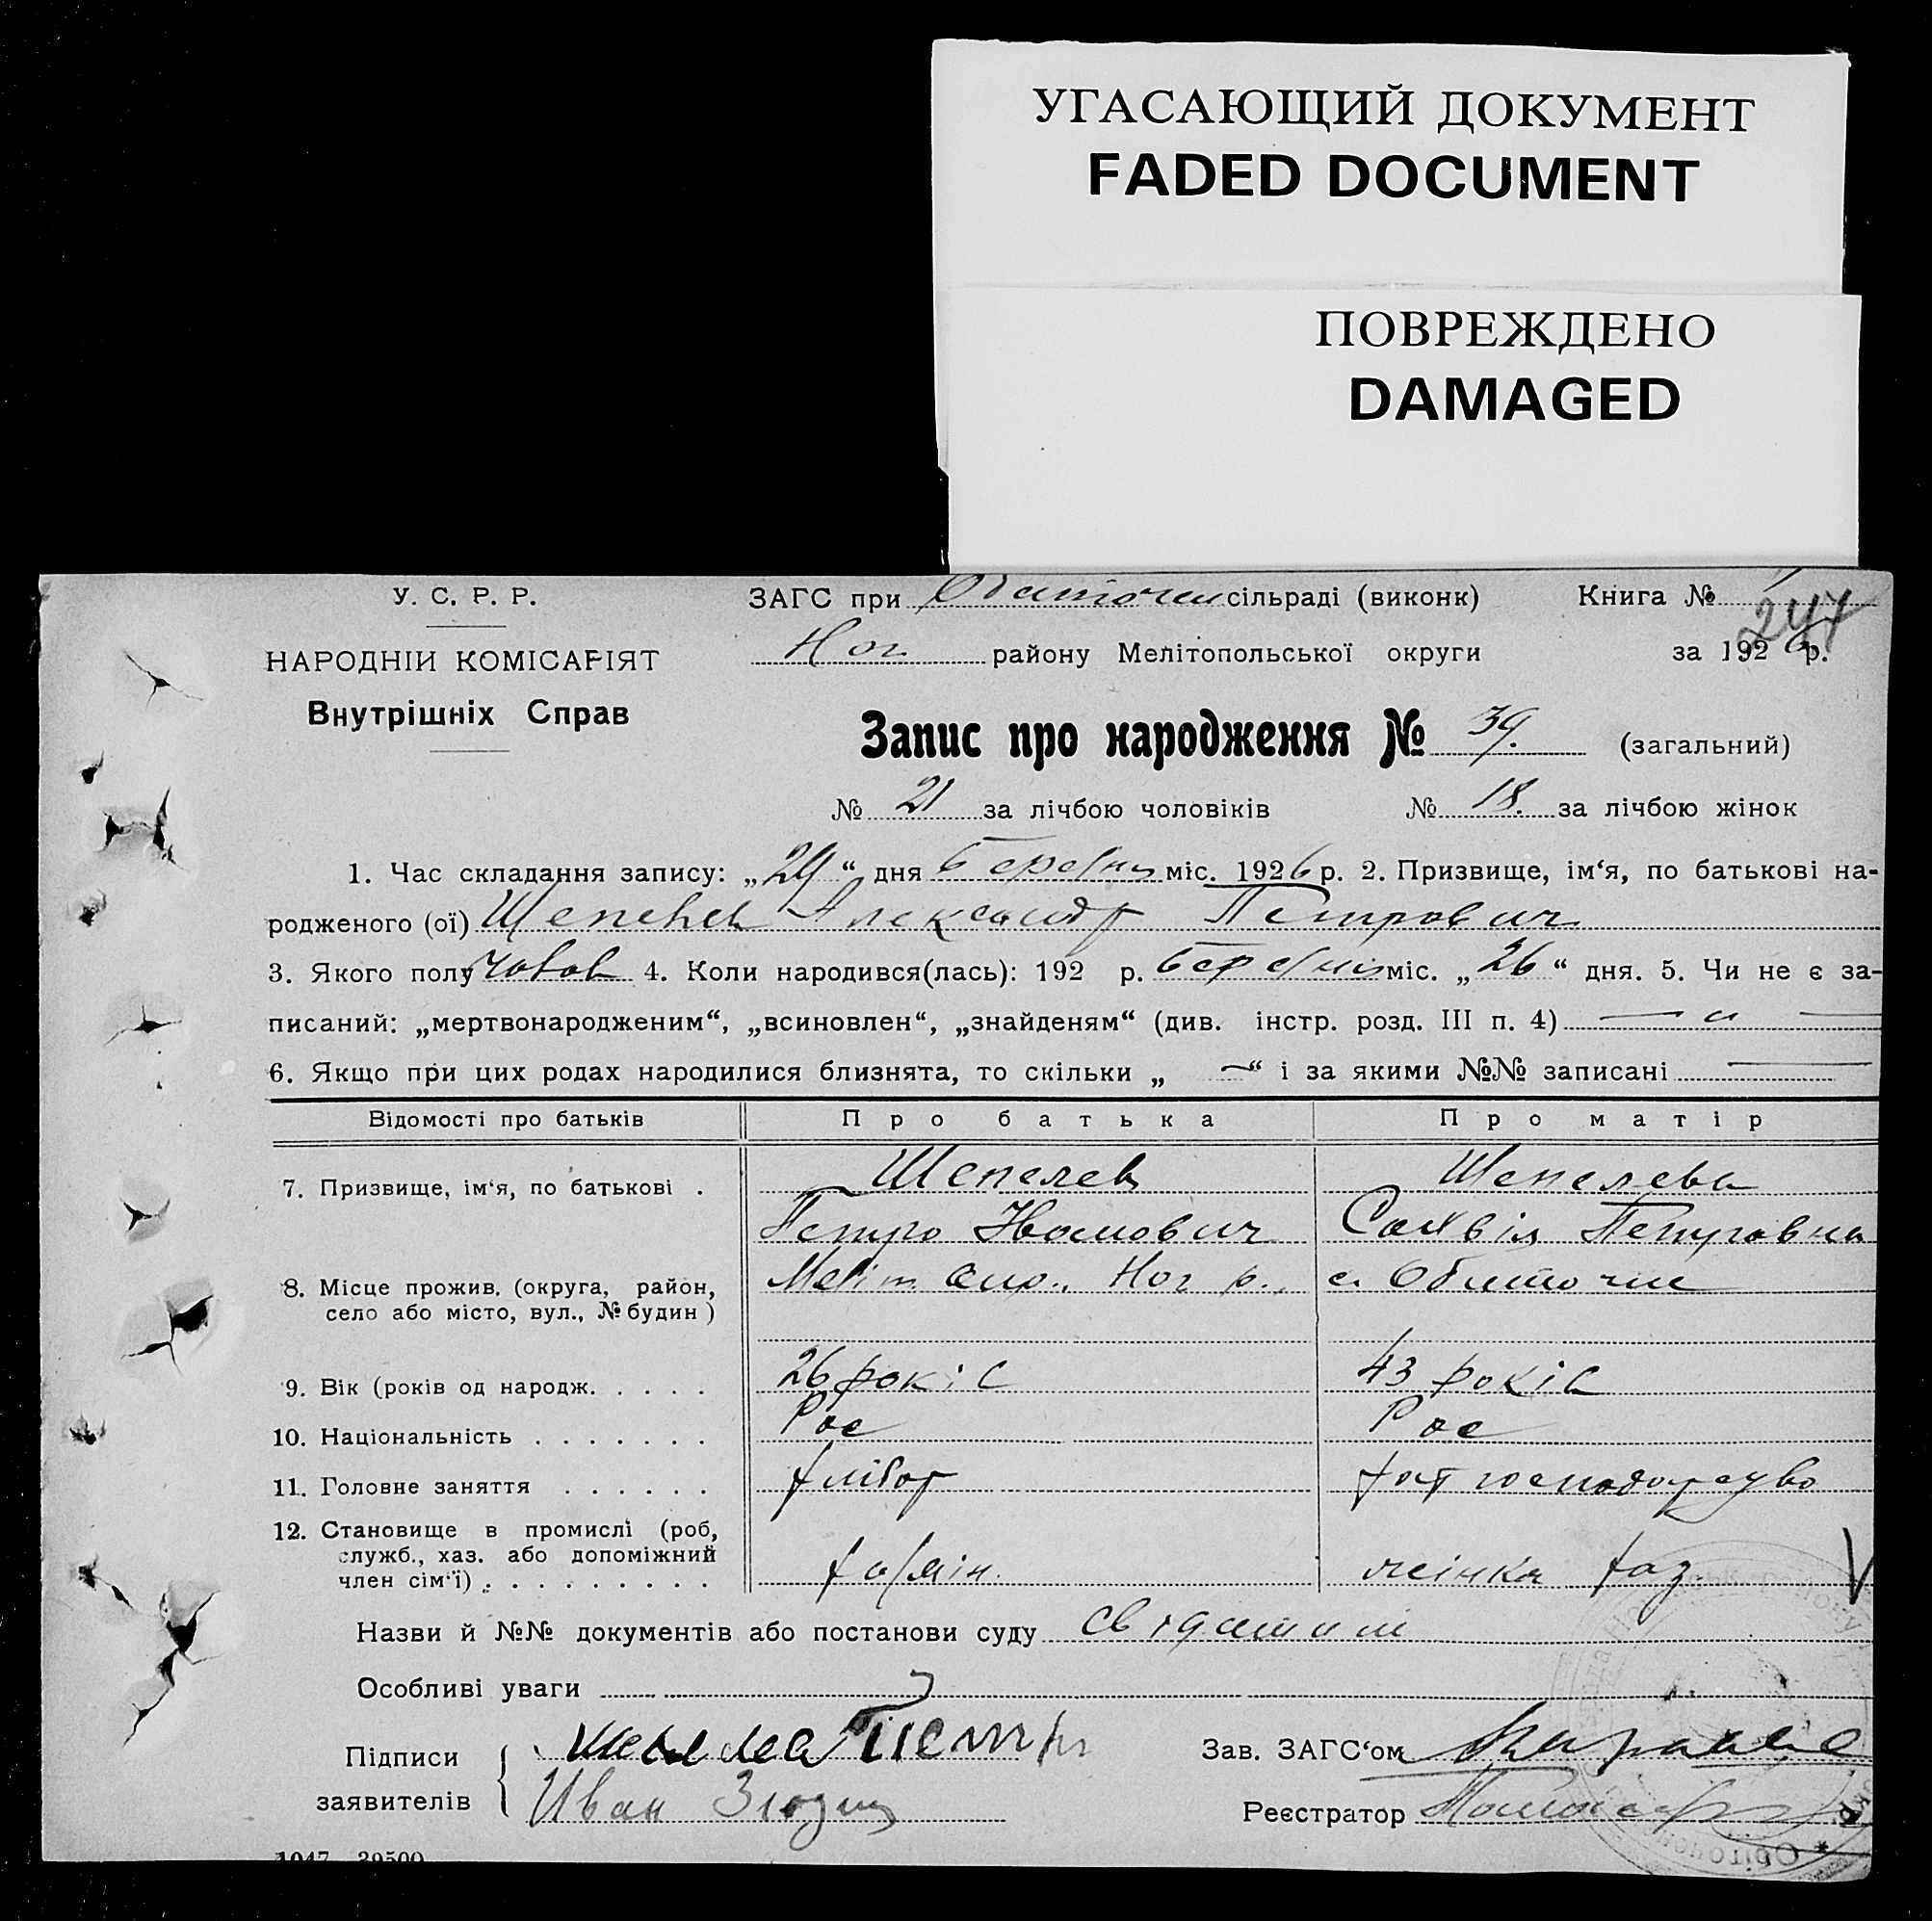 УГАСАЮЩИЙ ДОКУМЕНТ
FADED DOCUMENT
ПОВРЕЖДЕНО
DAMAGED
У. С. Р. Р.
НАРОДНІЙ КОМІСАРІЯТ
Внутрішніх Справ
ЗАГС при сільраді (виконк) Книга №
247
Ног району Мелітопольської округи за 1926 р.
Запис про народження № 39. (загальний)
№ 21 за лічбою чоловіків № 18. за лічбою жінок
1. Час складання запису: „29“ дня березня міс. 1926 р. 2. Призвище, ім‘я, по батькові на-
родженого (ої) Шепелев Александр Петрович
3. Якого полу 4. Коли народився(лась): 192 р. березня міс. „26“ дня. 5. Чи не є за-
писаний: „мертвонародженим“, „всиновлен“, „знайденям“ (див. інстр. розд. III п. 4) — „ —
6. Якщо при цих родах народилися близнята, то скільки „ —“ і за якими №№ записані —
Відомості про батьків Про батька Про матір
7. Призвище, ім‘я, по батькові . Шепелев Шепелева
Петро Іванович Петровна
8. Місце прожив. (округа, район, Меліт. окр., Ног р., с. Обиточне
село або місто, вул., № будин )
9. Вік (років од народж. . . . . 26 років 43 років
10. Національність . . . . . . . Рос Рос
11. Головне заняття . . . . . . хлібор хат господарсво
12. Становище в промислі (роб,
служб., хаз. або допоміжний
член сім‘ї) . . . . . . . . . хазяїн. жінка хаз.
Назви й №№ документів або постанови суду
Особливі уваги
Підписи Зав. ЗАГС‘ом
заявителів Иван Реєстратор
1047—39500